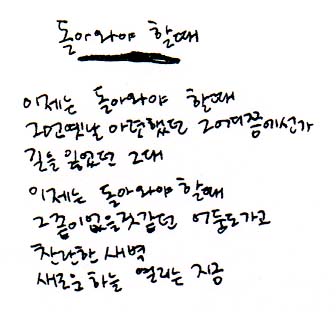 돌아와야 할때
이제는 돌아와야 할때
그먼옛날 아련했던 그어디쯤에선가
길을 잃었던 그대
이제는 돌아와야 할때
그끝이없을것같던 어둠도가고
찬란한 새벽
새로운하늘 열리는 지금